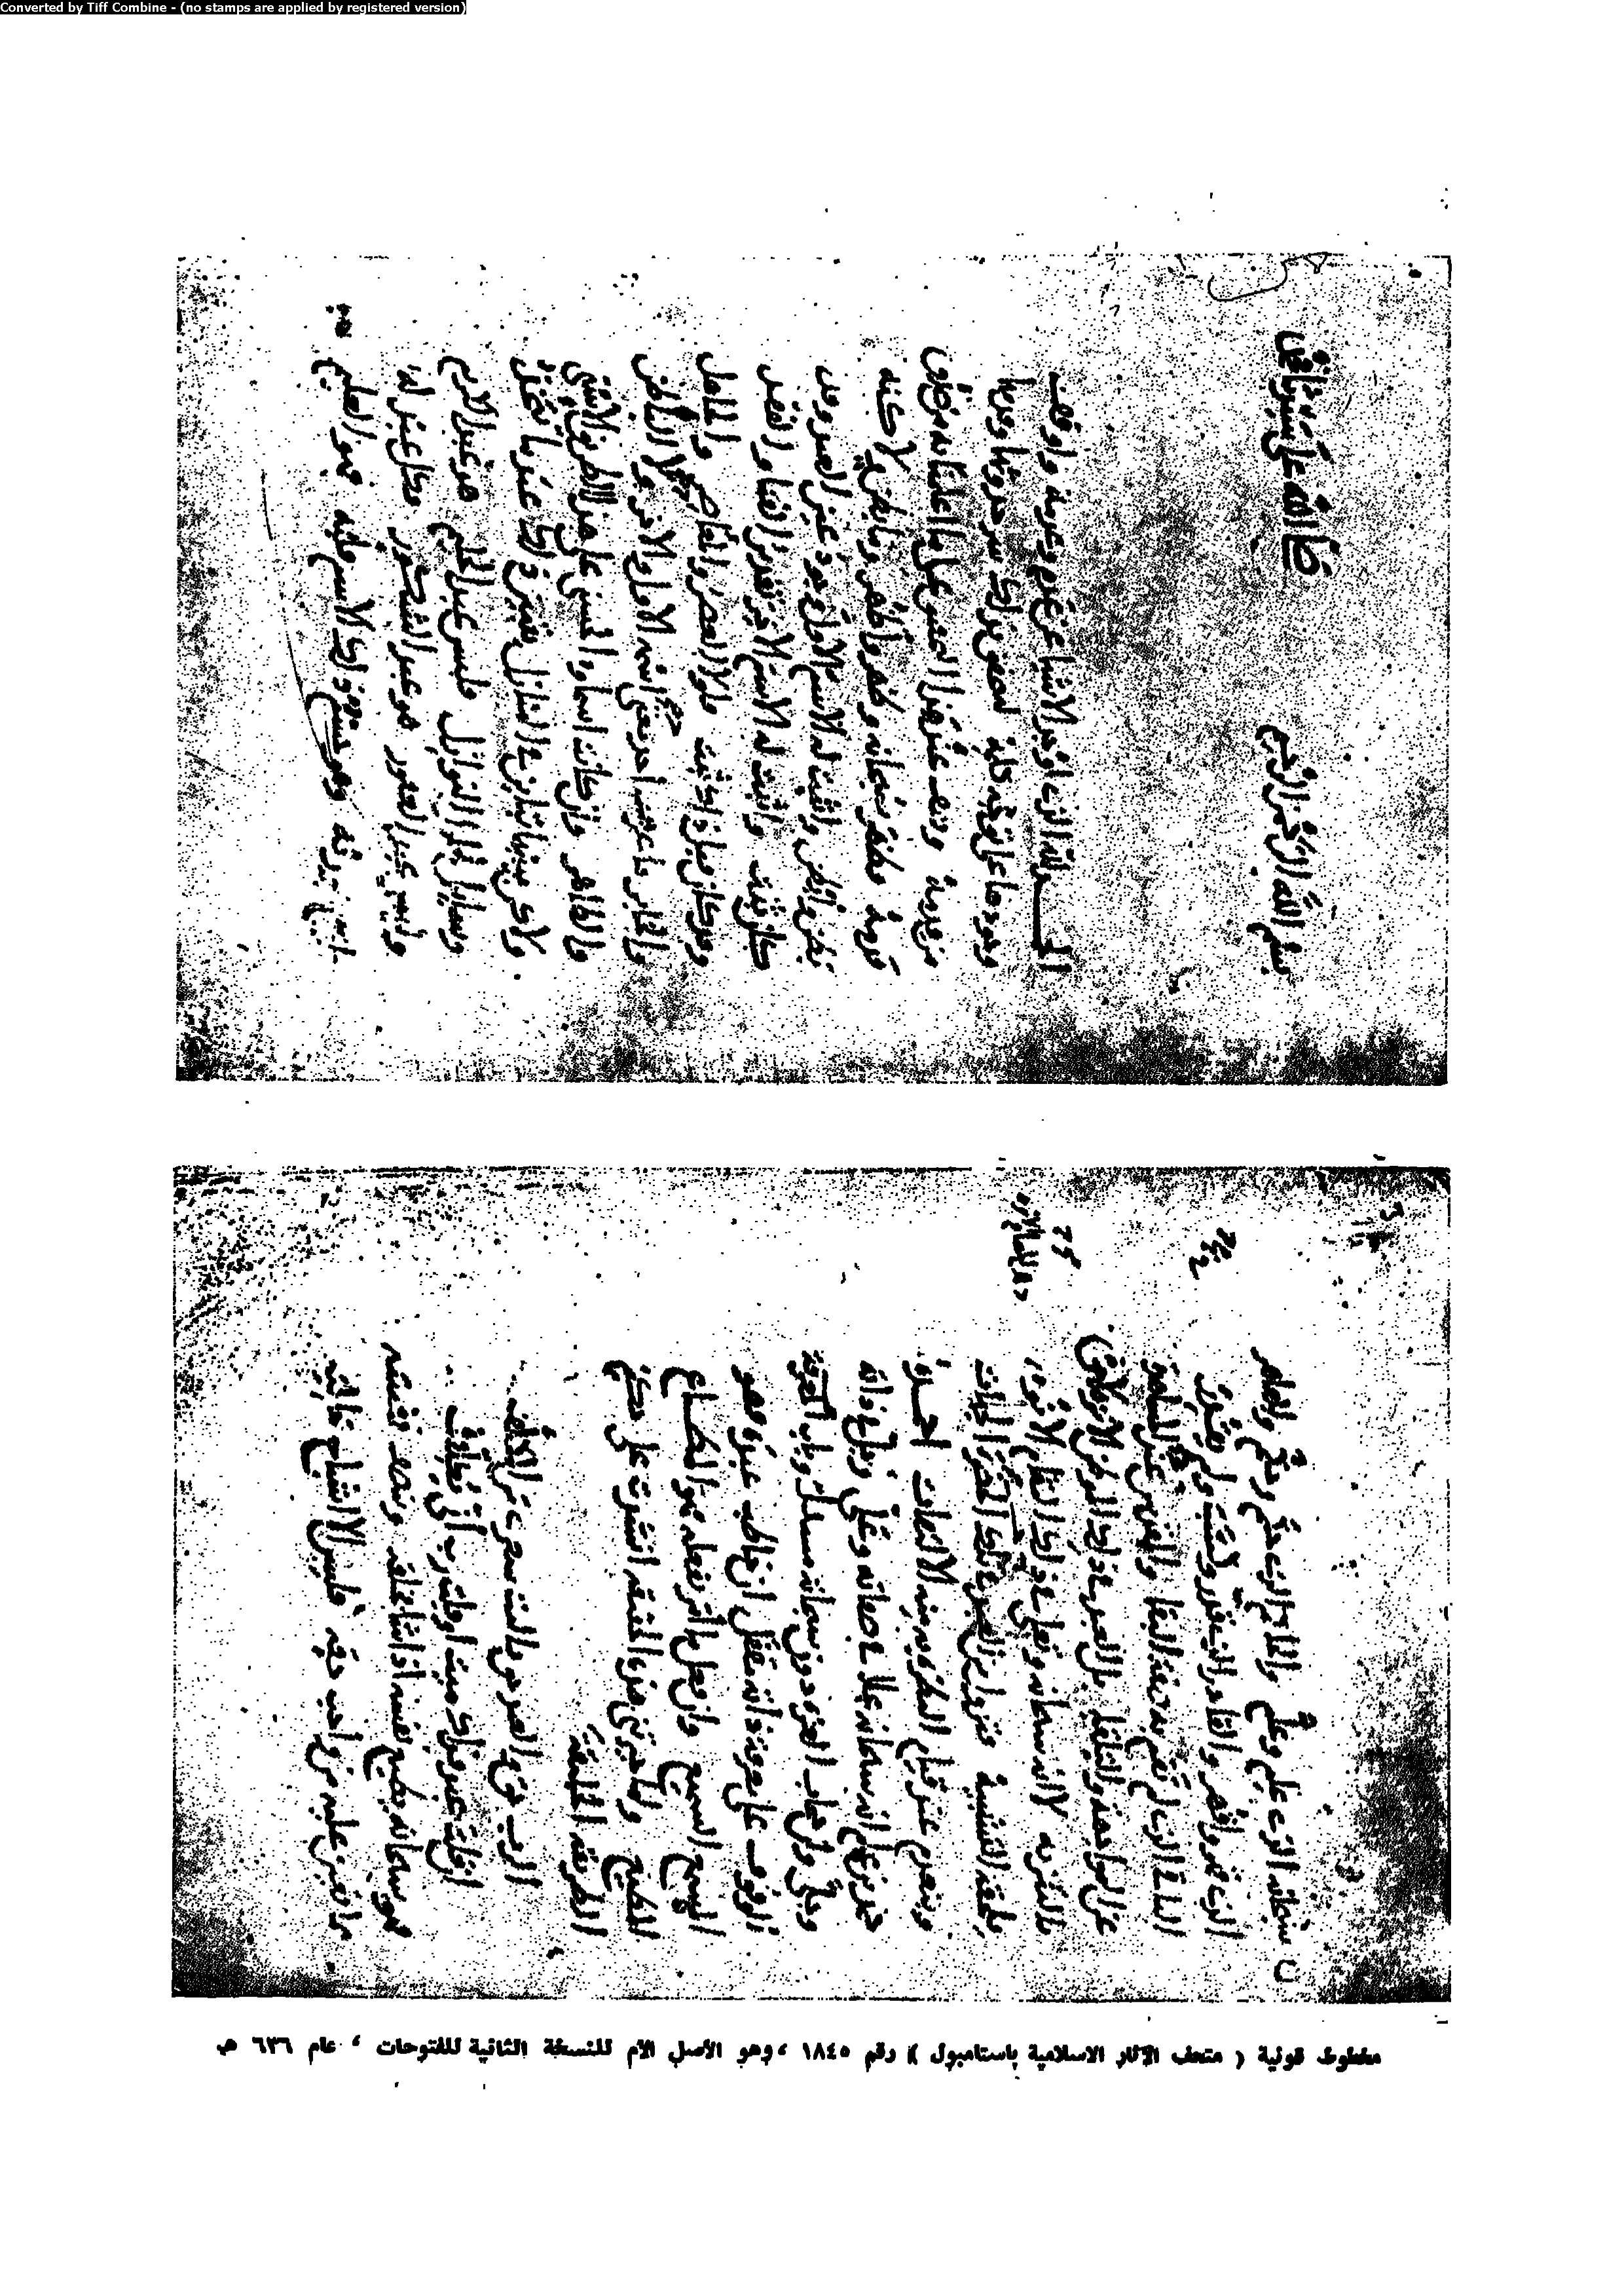 Converted by Tiff Combine - (no stamps are applied by registered version)
بسم الله الرحمن الرحيم صلى الله على سيدنا محمد
الحمد لله الذي اوجد الاشيا عن عدم وعدمه واوقف
وجودها على توجه كلمه لنحقق بذلك سر حدوثها وقدمها
من قدمه ونقف عند هذا التحقيق على ما اعلمنا به من صدق
قدمه فظهر سبحانه وظهر واظهر وما بطن ولاكنه
بطن وابطن واثبت له الاسم الاول وجود عين العبد وقد
كان ثبت واثبت له الاسم الاخر تقدير الفنا والفقد
وقد كان قبل ذلك ثبت فلولا العصر والمعاصر والجاهل
والخابر ما عرف احد معنى اسمه الاول والاخر ولا الباطن
والظاهر وان كانت اسماوه الحسنى على هذا الطريق الاسنى
ولاكن بينها تباين في المنازل يتبين ذلك عندما تتخذ
وسايل لحلول النوازل فليس عبد الحليم هو عبد الكريم
وليس عبد الغفور هو عبد الشكور فكل عبد له
اسم هو ربه وهو جسم ذلك الاسم قلبه فهو العليم
سبحانه الذي علم وعلم والحاكم الذي حكم وحكم والقاهر
الذي قهر واقهر والقادر الذي قدر وكسب ولم يقدر
الباقي الذي لم تقم به صفة البقا والمقدس عند المشاهدة
عن المواجهة والتلقا بل العبد في ذلك الموطن الانزه لاحق
بالتنزيه لا انه سبحانه وتعلى في ذلك المقام الانوه
يلحقه التشبيه فتزول من العبد في تلك الحضرة الجهات
وينعدم عند قيام النظرة به منه الالتفات احمده
حمد من علم انه سبحانه علا في صفاته وعلى وجل في ذاته
وجلى وان حجاب العزة دون سبحاته مسدل وباب
الوقوف على معرفة ذاته مقفل ان خاطب عبده فهو
المسمع السميع وان فعل ما امر بفعله فهو المطاع
المطيع ولما حيرتني هذه الحقيقة انشدت على حكم
الطريقة للخليقة
الرب حق والعبد حق يا ليت شعري من المكلف
ان قلت عبد فذاك ميت او قلت رب انى يكلف
فهو سبحانه يطيع نفسه اذا شا بخلقه وينصف نفسه
مما تعين عليه من واجب حقه فليس الا اشباح خاليه
مخطوط قونية ( متحف الآثار الاسلامية باستامبول ) رقم ١٨٤٥ ، وهو الأصل الأم للنسخة الثانية للفتوحات ، عام ٦٣٦ هـ